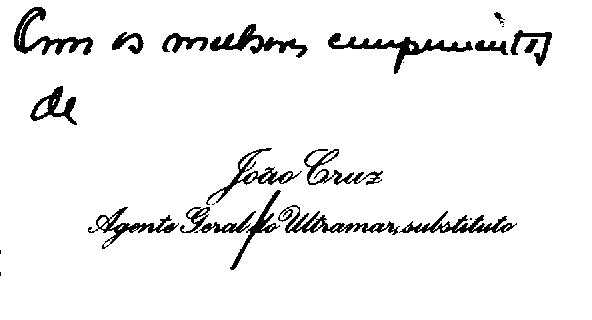 Com os melhores cumprimentos
de
João Cruz
Agente Geral do Ultramar, substituto